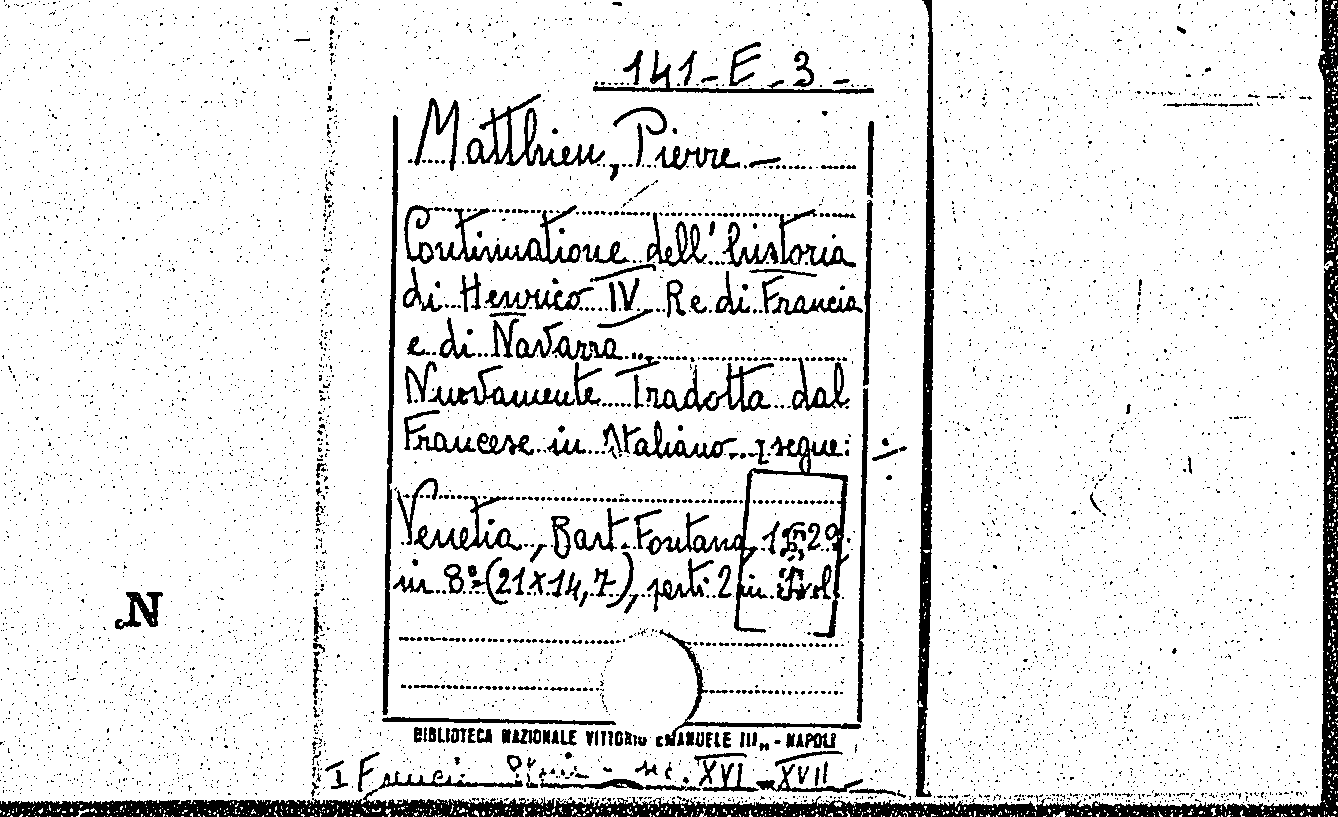 141-E-3-
Matthieu, Pierre-
Continuatione dell'historia
di Henrico IV Re di Francia
e di Navarra...
Nuovamente Tradotta dal
Francese in Italiano... segue:
Venetia, Bart. Fontana, 1629.
in 8º (21x14,7), parti 2 in
BIBLIOTECA NAZIONALE VITTORIO EMANUELE III„ - NAPOLI
I Francia - sec. XVI-XVII
N.